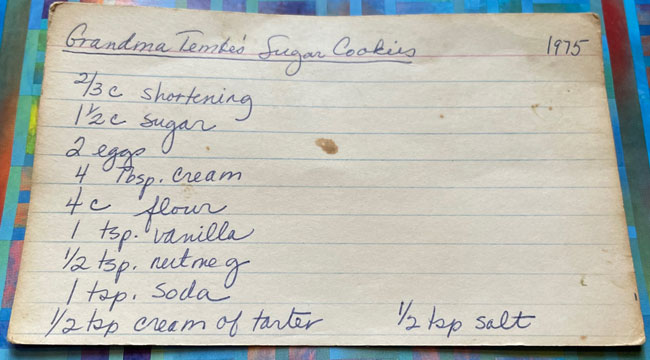 Grandma Temke's Sugar Cookies 1975
2/3 c shortening
1 1/2 c sugar
2 eggs
4 Tbsp. cream
4 c flour
1 tsp. vanilla
1/2 tsp. nutmeg
1 tsp. soda
1/2 tsp cream of tarter 1/2 tsp salt